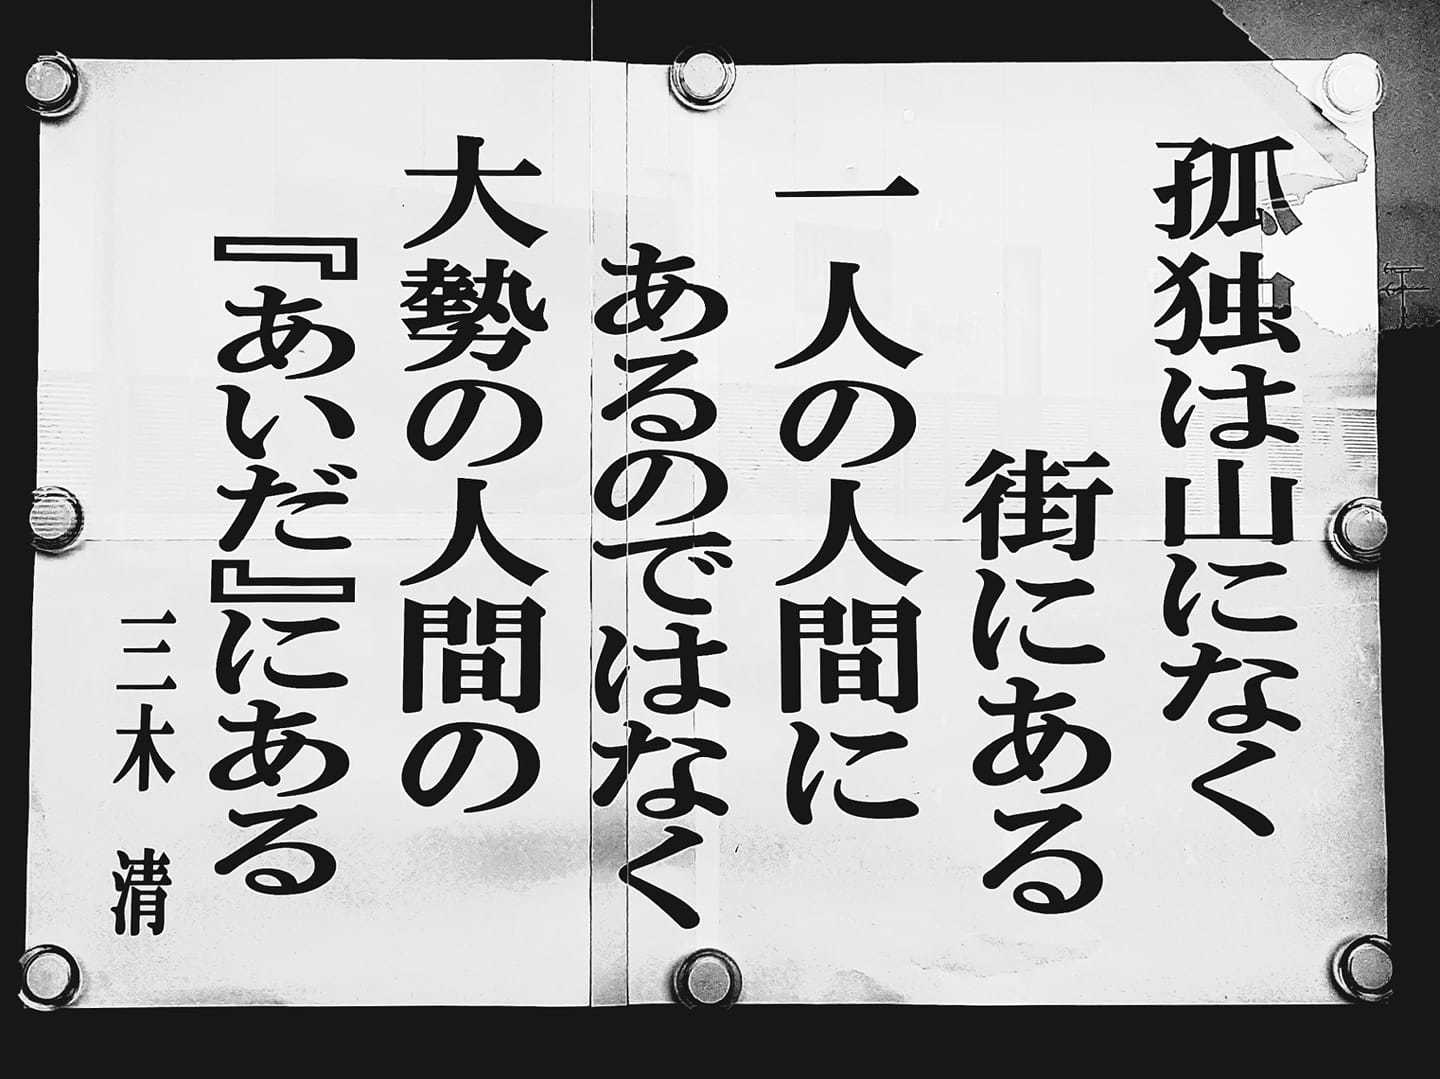 孤独は山になく
街にある
一人の人間に
あるのではなく
大勢の人間の
『あいだ』にある
三木 清